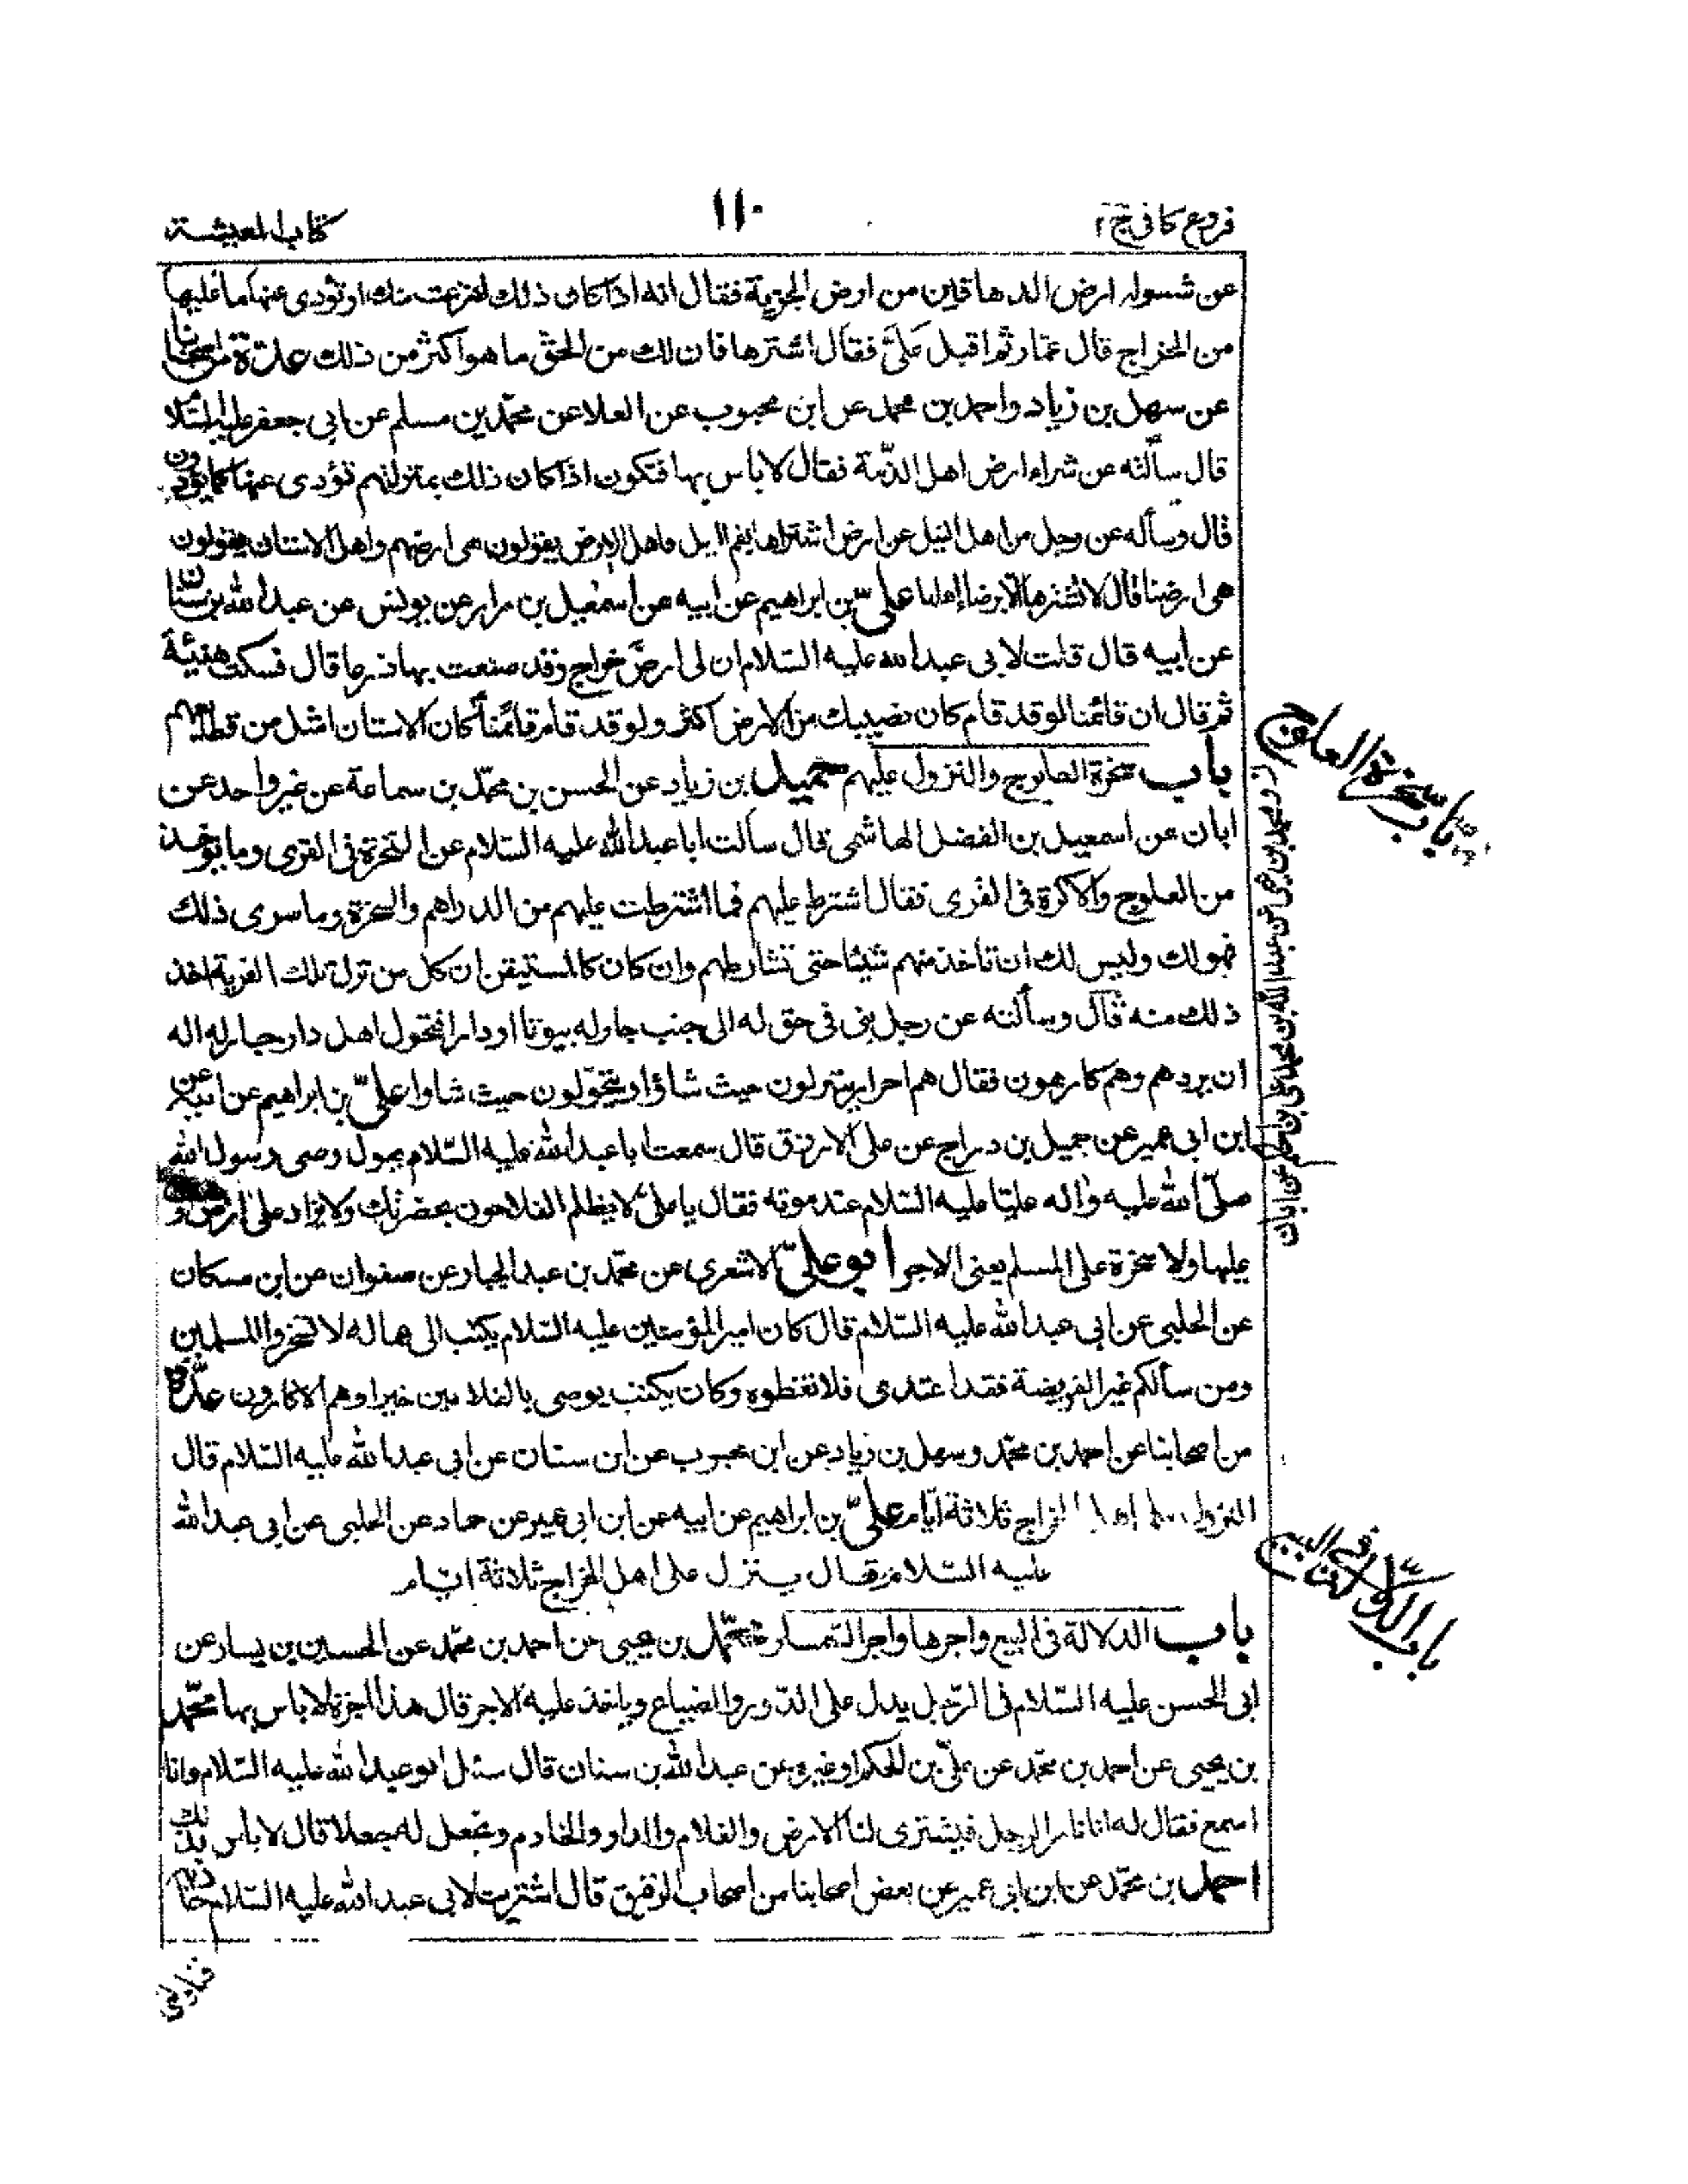 فروع كافى ج ٢
١١٠
كتاب المعيشة
عن شراء ارض الدهاقين من ارض الجزية فقال انه اذا كان ذلك انتزعت منك او تؤدى عنها ما عليها
من الخراج قال عمّار ثم اقبل علىّ فقال اشترها فان لك من الحق ما هو اكثر من ذلك عدّة من اصحابنا
عن سهل بن زياد واحمد بن محمد عن ابن محبوب عن العلا عن محمّد بن مسلم عن ابى جعفر عليه السّلام
قال سألته عن شراء ارض اهل الذّمة فقال لا باس بها فتكون اذا كان ذلك بمنزلتهم تؤدى عنها كما يؤدّون
قال وسأله عن رجل من اهل النيل عن ارض اشتراها بفم النيل فاهل الارض يقولون هى ارضهم واهل الاستان يقولون
هى ارضنا قال لا تشترها الّا برضا اهلها علىّ بن ابراهيم عن ابيه عن اسمعيل بن مرار عن يونس عن عبد الله بن سنان
عن ابيه قال قلت لابى عبد الله عليه السّلام ان لى ارض خراج وقد ضقت بها ذرعا قال فسكت هنيئة
ثم قال ان قائمنا لو قد قام كان نصيبك من الارض اكثر ولو قد قام قائمنا كان الاستان امثل من قطايعهم
باب سخرة العلوج والنزول عليهم حميد بن زياد عن الحسن بن محمّد بن سماعة عن غير واحد عن
ابان عن اسمعيل بن الفضل الهاشمى قال سألت ابا عبد الله عليه السّلام عن السّخرة فى القرى وما يؤخذ
من العلوج والاكرة فى القرى فقال اشترط عليهم فما اشترطت عليهم من الدراهم والسخرة وما سوى ذلك
فهو لك وليس لك ان تاخذ منهم شيئا حتى تشارطهم وان كان كالمستيقن ان كل من نزل تلك القرية اخذ
ذلك منه قال وسألته عن رجل بنى فى حق له الى جنب جار له بيوتا او دارا فتحول اهل دار جار له اله
ان يردهم وهم كارهون فقال هم احرار ينزلون حيث شاؤا ويتحوّلون حيث شاوا علىّ بن ابراهيم عن ابيه عن
ابن ابى عمير عن جميل بن دراج عن على الازرق قال سمعت ابا عبد الله عليه السّلام يقول وصى رسول الله
صلّى الله عليه واله عليّا عليه السّلام عند موته فقال يا علىّ لا يظلم الفلاحون بحضرتك ولا يزاد على ارض وضعت
عليها ولا سخرة على المسلم يعنى الاجير ابو علىّ الاشعرى عن محمّد بن عبد الجبار عن صفوان عن ابن مسكان
عن الحلبى عن ابى عبد الله عليه السّلام قال كان امير المؤمنين عليه السّلام يكتب الى عماله لا تسخروا المسلمين
ومن سألكم غير الفريضة فقد اعتدى فلا تعطوه وكان يكتب يوصى بالفلاحين خيرا وهم الاكارون عدّة
من اصحابنا عن احمد بن محمّد وسهل بن زياد عن ابن محبوب عن ابن سنان عن ابى عبد الله عليه السّلام قال
النزول على اهل الخراج ثلاثة ايّام علىّ بن ابراهيم عن ابيه عن ابن ابى عمير عن حماد عن الحلبى عن ابى عبد الله
عليه السّلام قال ينزل على اهل الخراج ثلاثة ايام
باب الدلالة فى البيع واجرها واجر السّمسار محمّد بن يحيى عن احمد بن محمّد عن الحسين بن يسار عن
ابى الحسن عليه السّلام فى الرّجل يدل على الدّور والضياع وياخذ عليه الاجر قال هذا اجرة لا باس بها محمّد
بن يحيى عن احمد بن محمّد عن علىّ بن الحكم او غيره عن عبد الله بن سنان قال سئل ابو عبد الله عليه السّلام وانا
اسمع فقال له انا نامر الرجل فيشترى لنا الارض والغلام والدار والخادم ونجعل له جعلا قال لا باس بذلك
احمد بن محمّد عن ابن ابى عمير عن بعض اصحابنا من اصحاب الرقيق قال اشتريت لابى عبد الله عليه السّلام جارية
باب سخرة العلوج
باب الدّلالة فى البيع
فناولنى